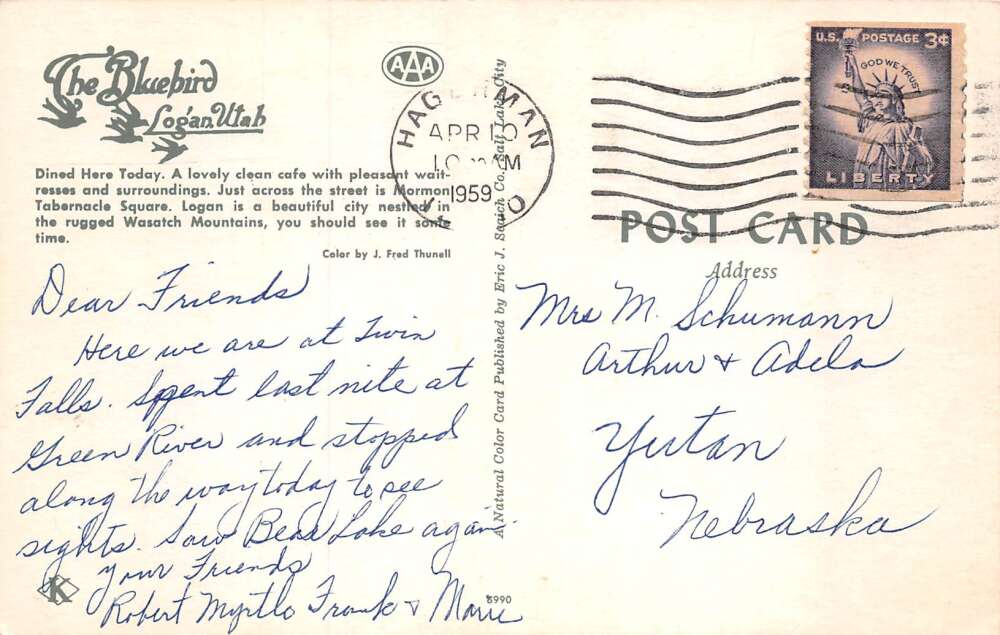 The Bluebird
Logan, Utah
AAA
Dined Here Today. A lovely clean cafe with pleasant wait-
resses and surroundings. Just across the street is Mormon
Tabernacle Square. Logan is a beautiful city nestled in
the rugged Wasatch Mountains, you should see it some
time.
Color by J. Fred Thunell
HAGERMAN
APR 10
AM
1959
U.S. POSTAGE 3¢
IN GOD WE TRUST
LIBERTY
POST CARD
Address
Dear Friends
Here we are at Twin
Falls. Spent last nite at
Green River and stopped
along the way today to see
sights. Saw Bear Lake again.
Your Friends
Robert Myrtle Frank & Marie
Mrs M. Schumann
Arthur & Adela
Yutan
Nebraska
A Natural Color Card Published by Eric J. Seaich Co., Salt Lake City
K
S990